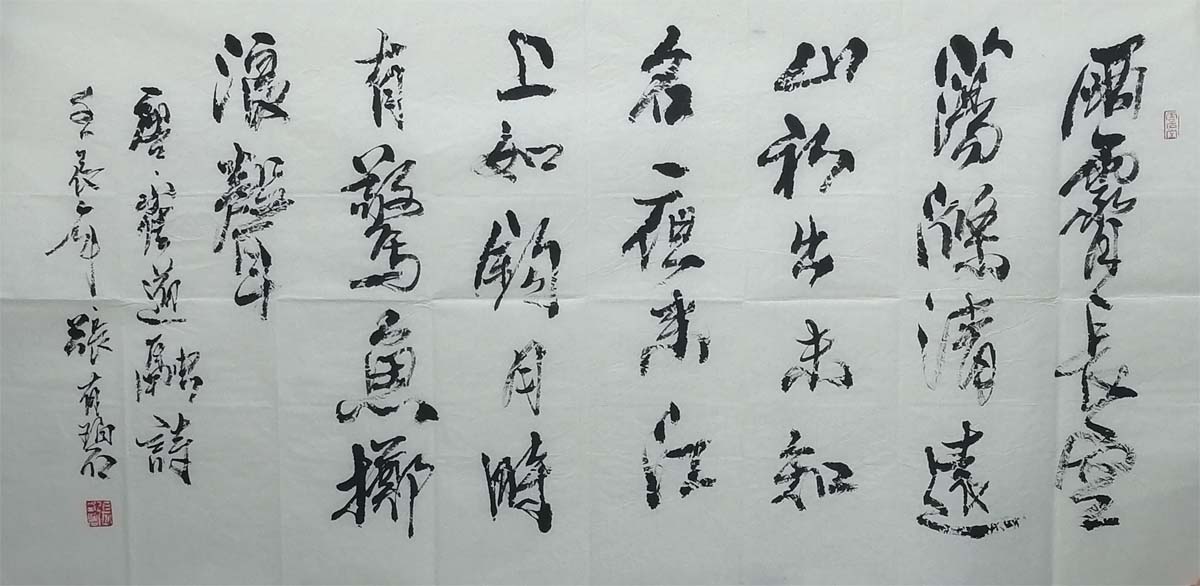 雨霽長空
蕩滌清遠
山初出未知
名夜來江
上如鈎月時
有驚魚擲
浪聲
唐崔道融詩
辰年張有碧